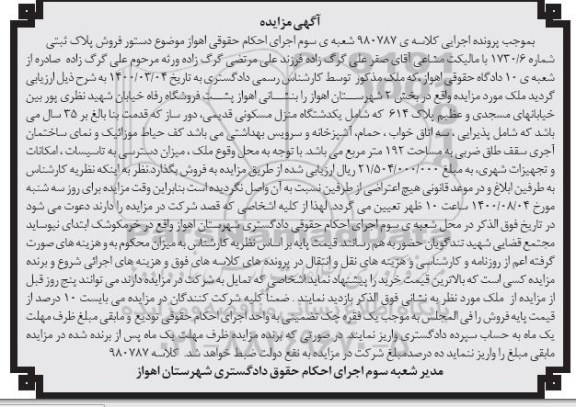 آگهی مزایده
بموجب پرونده اجرایی کلاسه ی ۹۸۰۷۸۷ شعبه ی سوم اجرای احکام حقوقی اهواز موضوع دستور فروش پلاک ثبتی
شماره ۱۷۳۰/۶ با مالکیت مشاعی آقای صفر علی گرگ زاده فرزند علی مرتضی گرگ زاده ورثه مرحوم علی گرگ زاده صادره از
شعبه ی ۱۰ دادگاه حقوقی اهواز ،که ملک مذکور توسط کارشناس رسمی دادگستری به تاریخ ۱۴۰۰/۰۳/۰۴ به شرح ذیل ارزیابی
گردید ملک مورد مزایده واقع در بخش ۲ شهرستان اهواز را بنشانی اهواز پشت فروشگاه رفاه خیابان شهید نظری پور بین
خیابانهای مسجدی و عظیم پلاک ۶۱۴ که شامل یکدستگاه منزل مسکونی قدیمی، دور ساز که قدمت بنا بالغ بر ۳۵ سال می
باشد که شامل پذیرایی ، سه اتاق خواب ، حمام، آشپزخانه و سرویس بهداشتی می باشد کف حیاط موزائیک و نمای ساختمان
آجری سقف طاق ضربی به مساحت ۱۹۲ متر مربع می باشد. با توجه به محل وقوع ملک ، میزان دسترسی به تاسیسات ، امکانات
و تجهیزات شهری، به مبلغ ۲۱/۵۰۴/۰۰۰/۰۰۰ ریال ارزیابی شده از طریق مزایده به فروش بگذارد.نظر به اینکه نظریه کارشناس
به طرفین ابلاغ و در موعد قانونی هیچ اعتراضی از طرفین نسبت به آن واصل نگردیده است بنابراین وقت مزایده برای روز سه شنبه
مورخ ۱۴۰۰/۰۸/۰۴ ساعت ۱۰ ظهر تعیین می گردد. لهذا از کلیه اشخاصی که قصد شرکت در مزایده را دارند دعوت می شود
در تاریخ فوق الذکر در محل شعبه ی سوم اجرای احکام حقوقی دادگستری شهرستان اهواز واقع در خرمکوشک ابتدای نیوساید
مجتمع قضایی شهید تندگویان حضور به هم رسانند. قیمت پایه بر اساس نظریه کارشناس به میزان محکوم به و هزینه های صورت
گرفته اعم از روزنامه و کارشناسی و هزینه های نقل و انتقال در پرونده های کلاسه های فوق و هزینه های اجرائی شروع و برنده
مزایده کسی است که بالاترین قیمت خرید را پیشنهاد نماید.اشخاصی که تمایل به شرکت در مزایده دارند می توانند پنج روز قبل
از مزایده از ملک مورد نظر به نشانی فوق الذکر بازدید نمایند . ضمناً کلیه شرکت کنندگان در مزایده می بایست ۱۰ درصد از
قیمت پایه فروش را فی المجلس به موجب یک فقره چک تضمینی به واحد اجرای احکام حقوقی تودیع و مابقی مبلغ ظرف مهلت
یک ماه به حساب سپرده دادگستری واریز نمایند .در صورتی که برنده مزایده ظرف مهلت یک ماه پس از برنده شده در مزایده
مابقی مبلغ را واریز ننماید ده درصدمبلغ شرکت در مزایده به نفع دولت ضبط خواهد شد. کلاسه ۹۸۰۷۸۷
مدیر شعبه سوم اجرای احکام حقوق دادگستری شهرستان اهواز